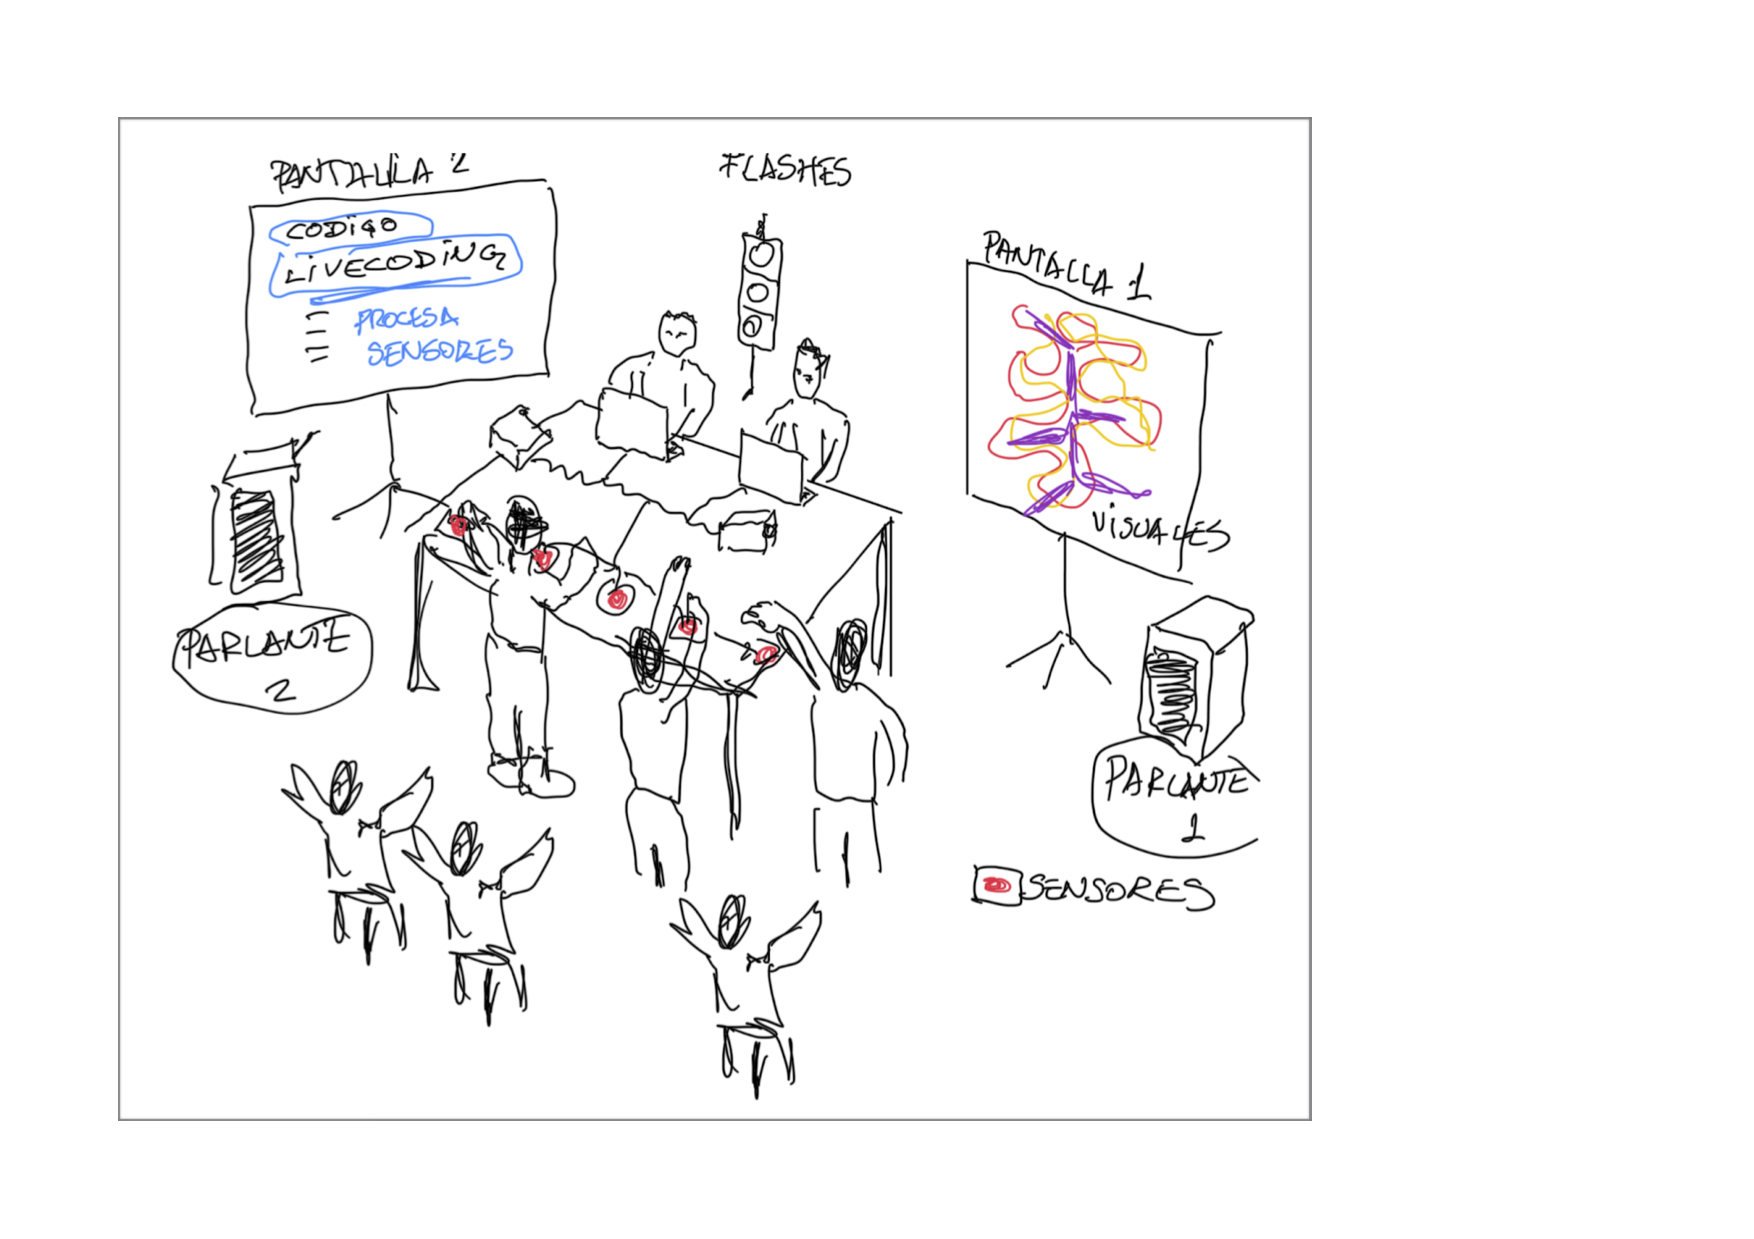 PANTALLA 2
CODIGO
LIVECODING
PROCESA
SENSORES
FLASHES
PANTALLA 1
VISUALES
PARLANTE
2
PARLANTE
1
SENSORES